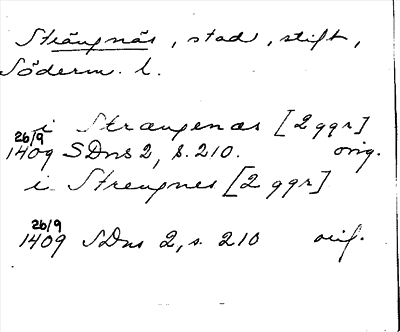 Strängnäs, stad, stift,
Söderm. l.
i Strængenæs [2 ggr]
26/9
1409 SDns 2, s. 210. orig.
i Strengnes [2 ggr]
26/9
1409 SDns 2, s. 210 orig.